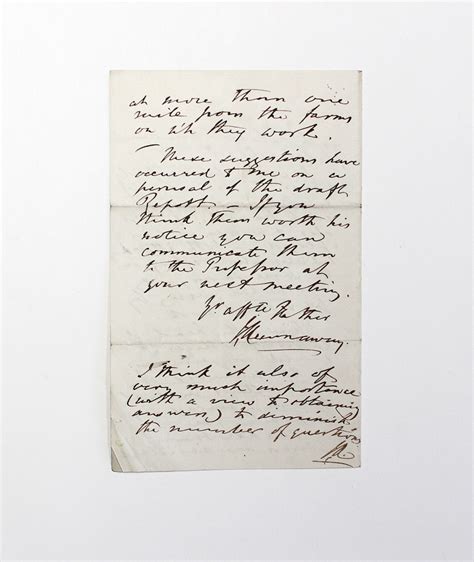 at more than one
mile from the farms
on wh they work.
— These suggestions have
occurred to me on a
perusal of the draft
Report. — If you
think them worth his
notice you can
communicate them
to the Professor at
your next meeting.
Yr affte Father
I think it also of
very much importance
(with a view to obtaining
answers) to diminish
the number of questions